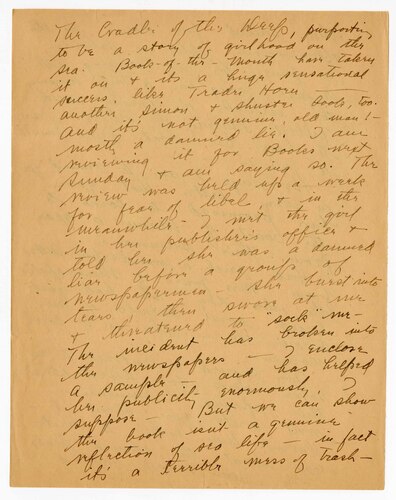 The Cradle of the Deep, purporting
to be a story of girlhood on the
sea. Book-of-the-Month have taken
it on & it's a huge sensational
success, like Trader Horn
another Simon & Shuster book, too.
And it's not genuine, old man! -
mostly a damned lie. I am
reviewing it for Books next
Sunday & am saying so. The
review was held up a week
for fear of libel, & in the
meanwhile - I met the girl
in her publisher's office &
told her she was a damned
liar before a group of
newspapermen - she burst into
tears then swore at me
& threatened to "sock" me -
The incident has broken into
the newspapers - I enclose
a sample - and has helped
her publicity enormously, I
suppose. But we can show
the book isn't a genuine
reflection of sea life - in fact
it's a terrible mess of trash -